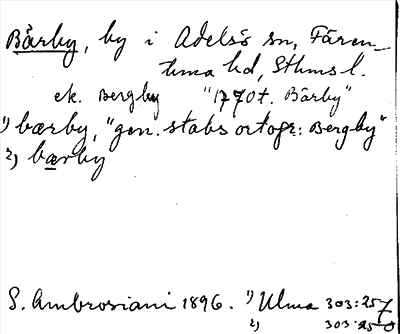 Bärby, by i Adelsö sn, Fären-
tuna hd, Sthms l.
ek. Bergby "1770 t. Bärby"
1) bærby, "gen. stabs ortogr: Bergby"
2) bærby
S. Ambrosiani 1896. 1) Ulma 303:257
2) 303:250